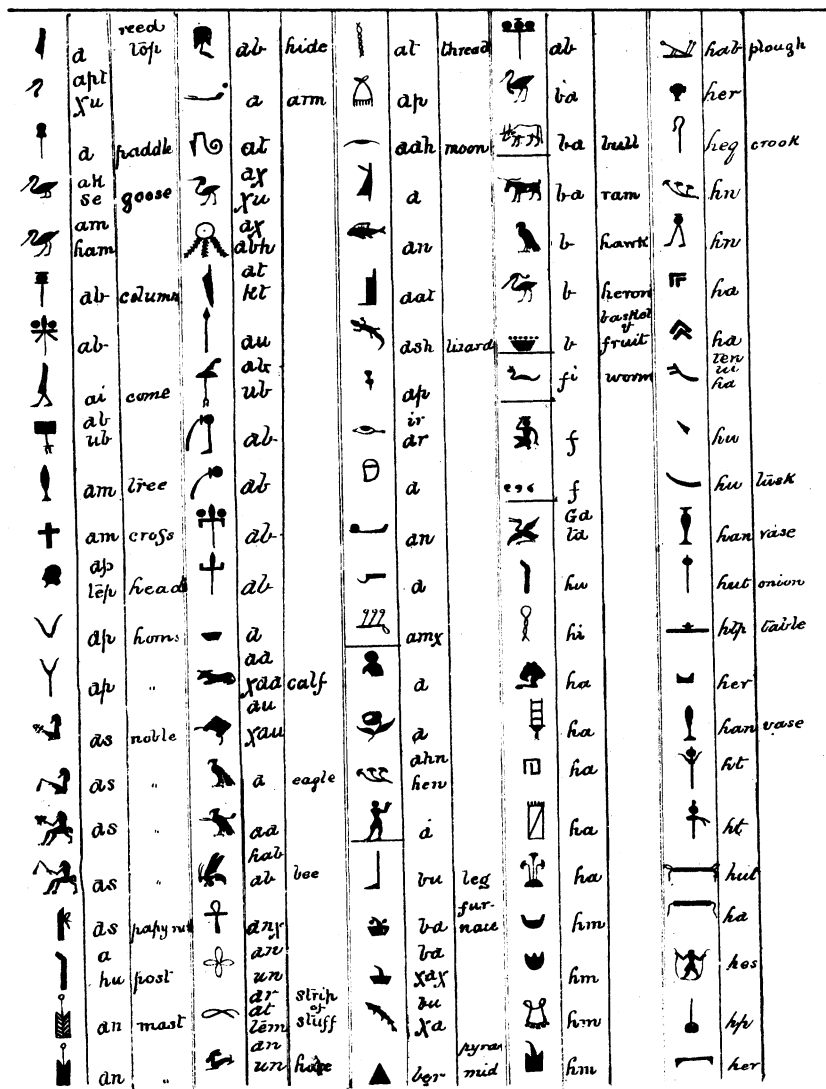 reed
a top
apt
xu
a paddle
ak
se goose
am
ham
ab column
ab
ai come
ab
ub
am tree
am cross
ap
tep head
ap horns
ap "
as noble
as "
as "
as "
as papyrus
a
hu post
an mast
an "
ab hide
a arm
at
ax
xu
ax
abh
at
kt
au
ab
ub
ab
ab
ab
ab
a
aa
xaa calf
au
xau
a eagle
aa
hab
ab bee
anx
an
un
ar strip
at of
tem stuff
an
un hare
at thread
ap
aah moon
a
an
aat
ash lizard
ap
ir
ar
a
an
a
amx
a
a
ahn
hen
a
bu leg
fur-
ba nace
ba
xax
bu
xa
pyra
ber mid
ab
ba
ba bull
ba ram
b hawk
b heron
basket
of
b fruit
fi worm
f
f
Ga
ta
hu
hi
ha
ha
ha
ha
ha
hm
hm
hm
hm
hab plough
her
heq crook
hn
hn
ha
ha
ten
ha
hu
hu tusk
han vase
hut onion
htp table
her
han vase
ht
ht
hut
ha
hes
hp
her